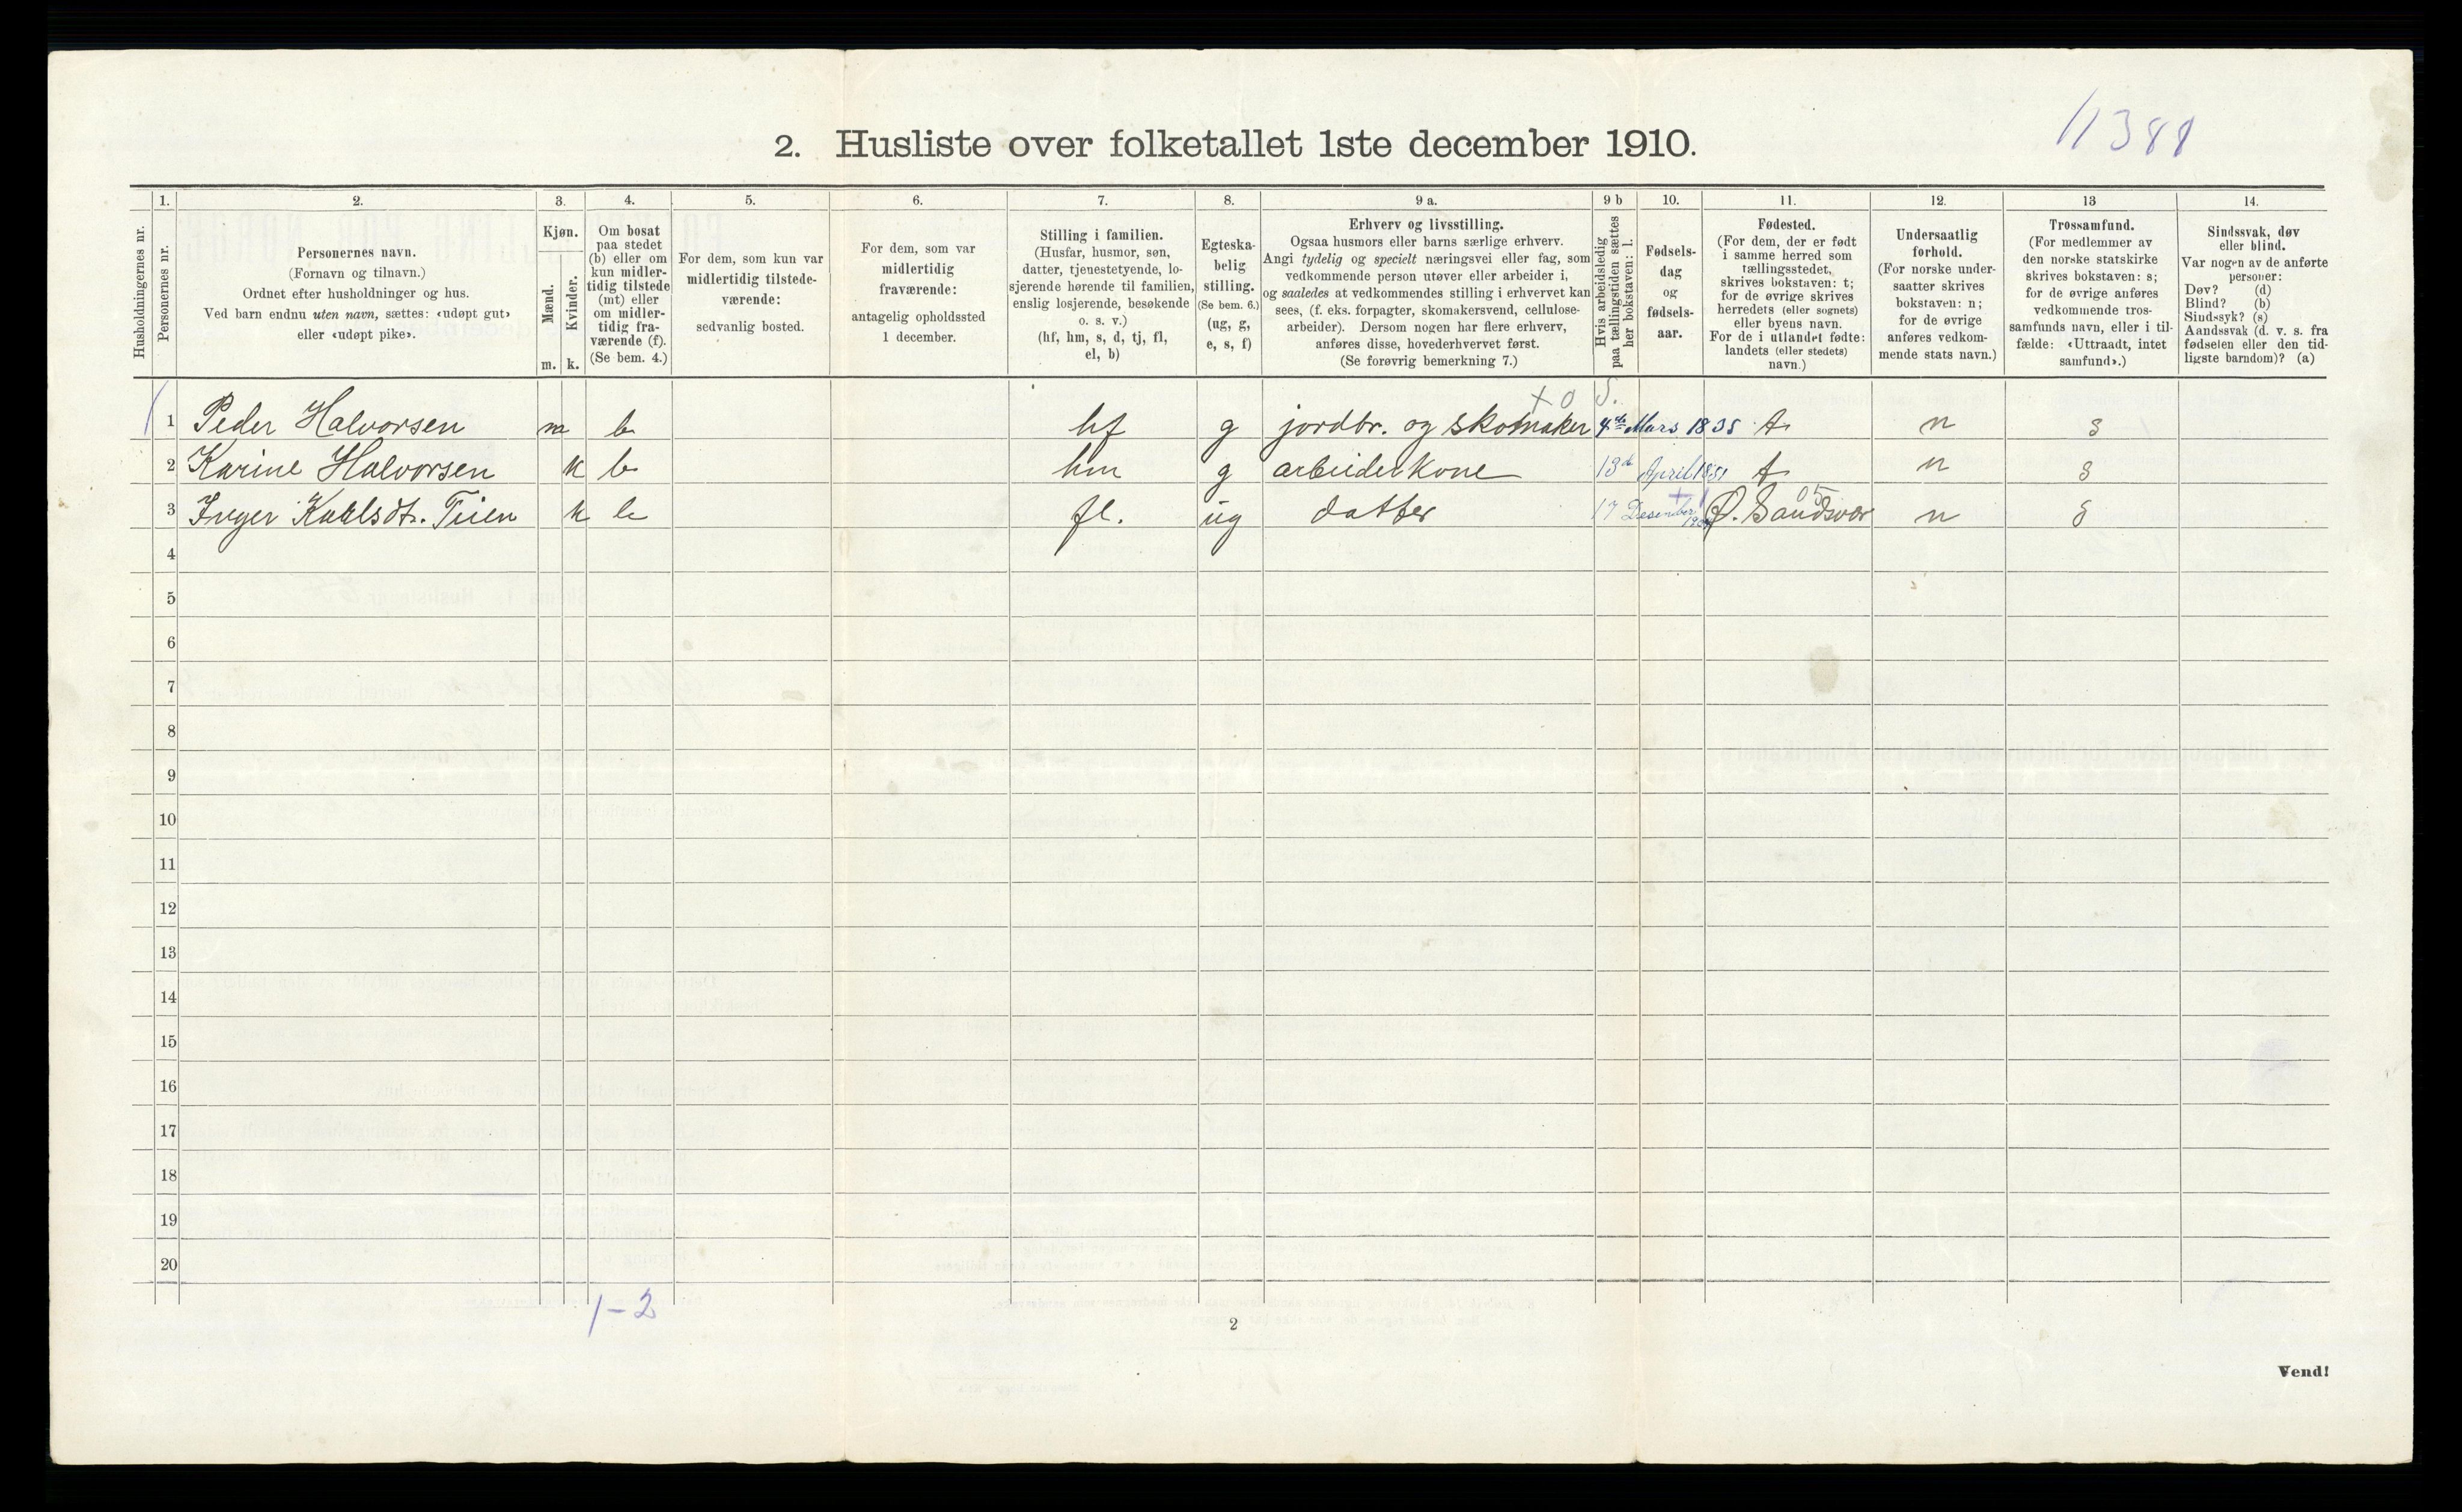 11388
2. Husliste over folketallet 1ste december 1910.
Husholdningernes nr.
1.
Personernes nr.
2.
Personernes navn.
(Fornavn og tilnavn.)
Ordnet efter husholdninger og hus.
Ved barn endnu uten navn, sættes: «udøpt gut»
eller «udøpt pike».
3.
Kjøn.
Mænd.
m.
Kvinder.
k.
4.
Om bosat
paa stedet
(b) eller om
kun midler-
tidig tilstede
(mt) eller
om midler-
tidig fra-
værende (f).
(Se bem. 4.)
5.
For dem, som kun var
midlertidig tilstede-
værende:
sedvanlig bosted.
6.
For dem, som var
midlertidig
fraværende:
antagelig opholdssted
1 december.
7.
Stilling i familien.
(Husfar, husmor, søn,
datter, tjenestetyende, lo-
sjerende hørende til familien,
enslig losjerende, besøkende
o. s. v.)
(hf, hm, s, d, tj, fl,
el, b)
8.
Egteska-
belig
stilling.
(Se bem. 6.)
(ug, g,
e, s, f)
9 a.
Erhverv og livsstilling.
Ogsaa husmors eller barns særlige erhverv.
Angi tydelig og specielt næringsvei eller fag, som
vedkommende person utøver eller arbeider i,
og saaledes at vedkommendes stilling i erhvervet kan
sees, (f. eks. forpagter, skomakersvend, cellulose-
arbeider). Dersom nogen har flere erhverv,
anføres disse, hovederhvervet først.
(Se forøvrig bemerkning 7.)
9 b
Hvis arbeidsledig
paa tællingstiden sættes
her bokstaven: l.
10.
Fødsels-
dag
og
fødsels-
aar.
11.
Fødested.
(For dem, der er født
i samme herred som
tællingsstedet,
skrives bokstaven: t;
for de øvrige skrives
herredets (eller sognets)
eller byens navn.
For de i utlandet fødte:
landets (eller stedets)
navn.)
12.
Undersaatlig
forhold.
(For norske under-
saatter skrives
bokstaven: n;
for de øvrige
anføres vedkom-
mende stats navn.)
13
Trossamfund.
(For medlemmer av
den norske statskirke
skrives bokstaven: s;
for de øvrige anføres
vedkommende tros-
samfunds navn, eller i til-
fælde: «Uttraadt, intet
samfund».)
14.
Sindssvak, døv
eller blind.
Var nogen av de anførte
personer:
Døv? (d)
Blind? (b)
Sindssyk? (s)
Aandssvak (d. v. s. fra
fødselen eller den tid-
ligste barndom)? (a)
x 0 5.
1 Peder Halvorsen m b hf g jordbr. og skomaker 4de Mars 1835 t n s
2 Karine Halvorsen k b hm g arbeiderkone 13de April 1851 t n s
05
3 Inger Kahlsdt. Tuen k b fl. ug datter 17 Desember Ø. Sandsvær n s
4
5
6
7
8
9
10
11
12
13
14
15
16
17
18
19
20
1-2
2
Vend!